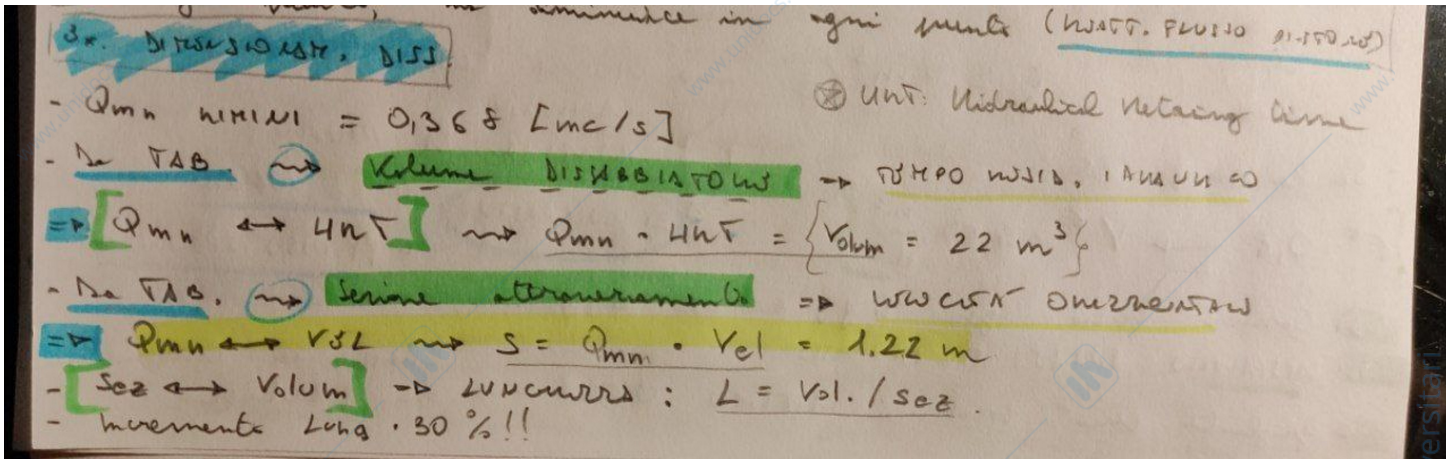 in ogni punto (REATT. FLUSSO PISTONE)
3*. DIMENSIONAM. DISS.
- Qmn NIMINI = 0,368 [mc/s]
⊛ HRT: Hidraulical Retaing time
- Da TAB. ⇝ Volume DISSABBIATORE → TEMPO RESID. IDRAULICO
=> [Qmn ↔ HRT] ⇝ Qmn · HRT = {Volum = 22 m³}
- Da TAB. ⇝ Sezione attraversamento => VELOCITÀ ORIZZONTALE
=> Qmn ↔ VEL ⇝ S = Qmn · Vel = 1.22 m
- [Sez ↔ Volum] → LUNGHEZZA : L = Vol. / sez.
- Incremento Lung · 30 %!!